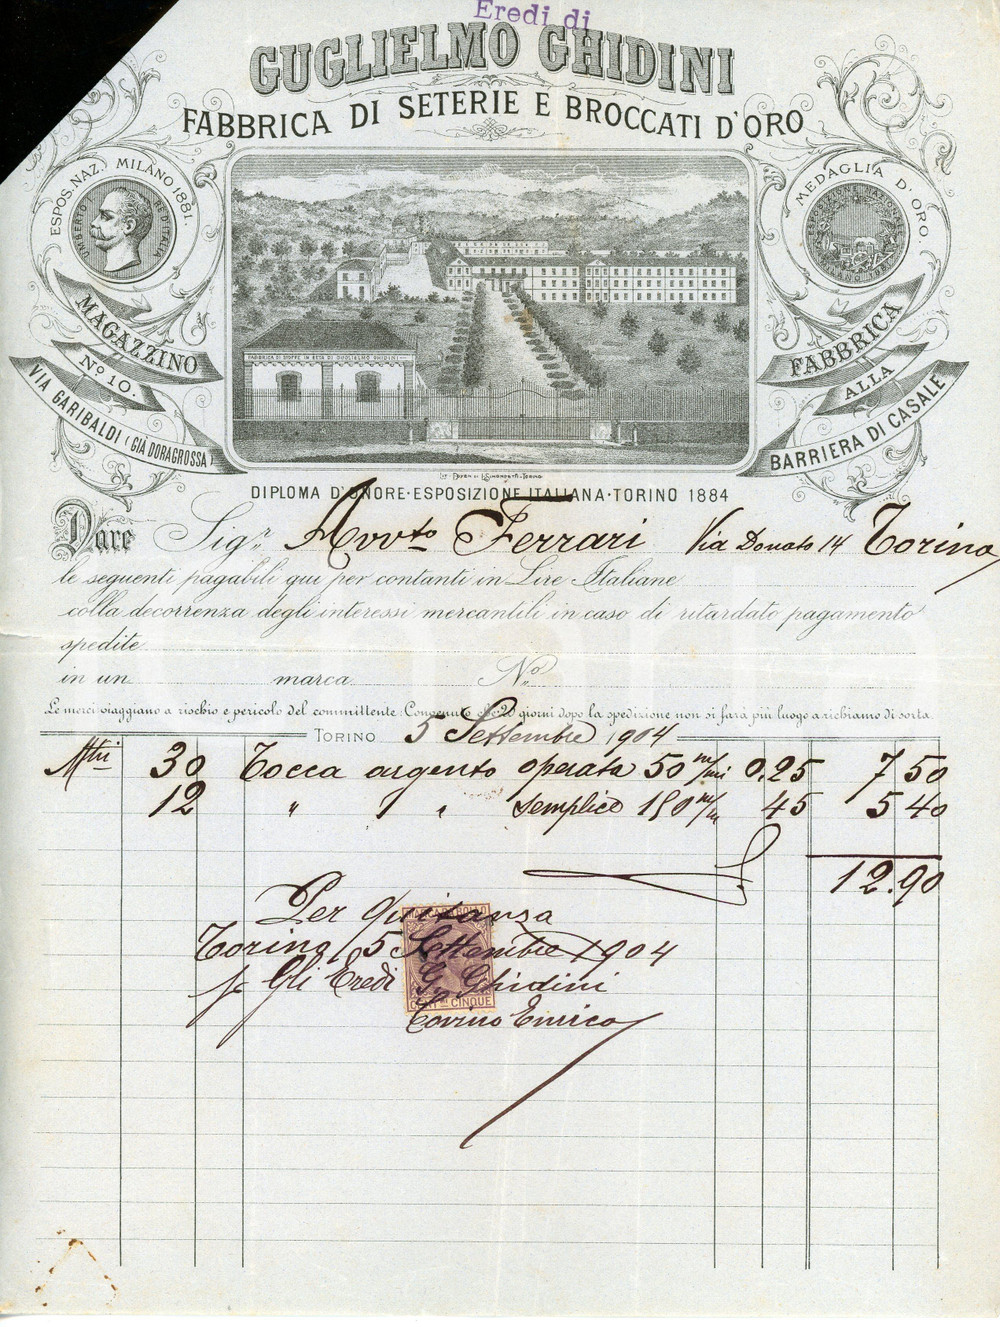 Eredi di
GUGLIELMO GHIDINI
FABBRICA DI SETERIE E BROCCATI D'ORO
ESPOS. NAZ. MILANO 1881.
UMBERTO I RE D'ITALIA
MEDAGLIA D'ORO.
MAGAZZINO
No 10.
VIA GARIBALDI (GIÀ DORAGROSSA)
FABBRICA
ALLA
BARRIERA DI CASALE
FABBRICA DI STOFFE IN SETA DI GUGLIELMO GHIDINI
DIPLOMA D'ONORE·ESPOSIZIONE ITALIANA·TORINO 1884
Dare Sigr. Avvto Ferrari Via Donato 14 Torino
le seguenti pagabili qui per contanti in Lire Italiane
colla decorrenza degli interessi mercantili in caso di ritardato pagamento
spedite
in un marca No
Le merci viaggiano a rischio e pericolo del committente. Convenuto che 20 giorni dopo la spedizione non si farà più luogo a richiamo di sorta.
TORINO 5 Settembre 1904
Mtri 30 Tocca argento operata 50 m/m 0,25 7 50
12 " " " semplice 180 m/m 45 5 40
12.90
Per Quitanza
Torino, 5 Settembre 1904
p. Gli Eredi G. Ghidini
Torino Enrico
MARCA DA BOLLO
CENT. CINQUE